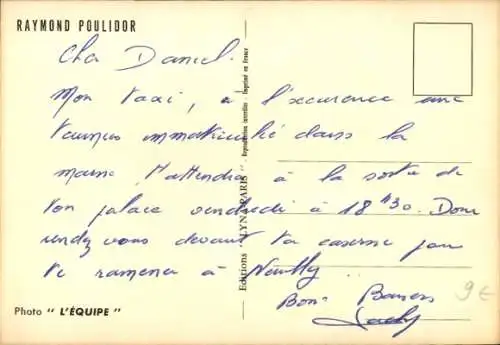 RAYMOND POULIDOR
Cher Daniel.
Mon taxi, à l'occurence une
immatriculé dans la
marne, t'attendra à la sortie de
ton palace vendredi à 18 H30. Donc
rendez vous devant ta caserne pour
te ramener à Neuilly
Bons Baisers
9€
Photo " L'ÉQUIPE "
Editions "LYNA-PARIS" - Reproduction interdite - Imprimé en France